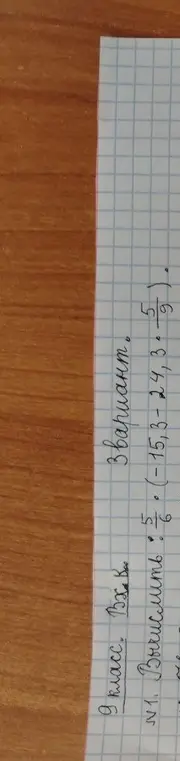 9 класс. Вх. К. 3 вариант.
№1. Вычислить: 5/6 · (-15,3 - 24,3 · 5/9).